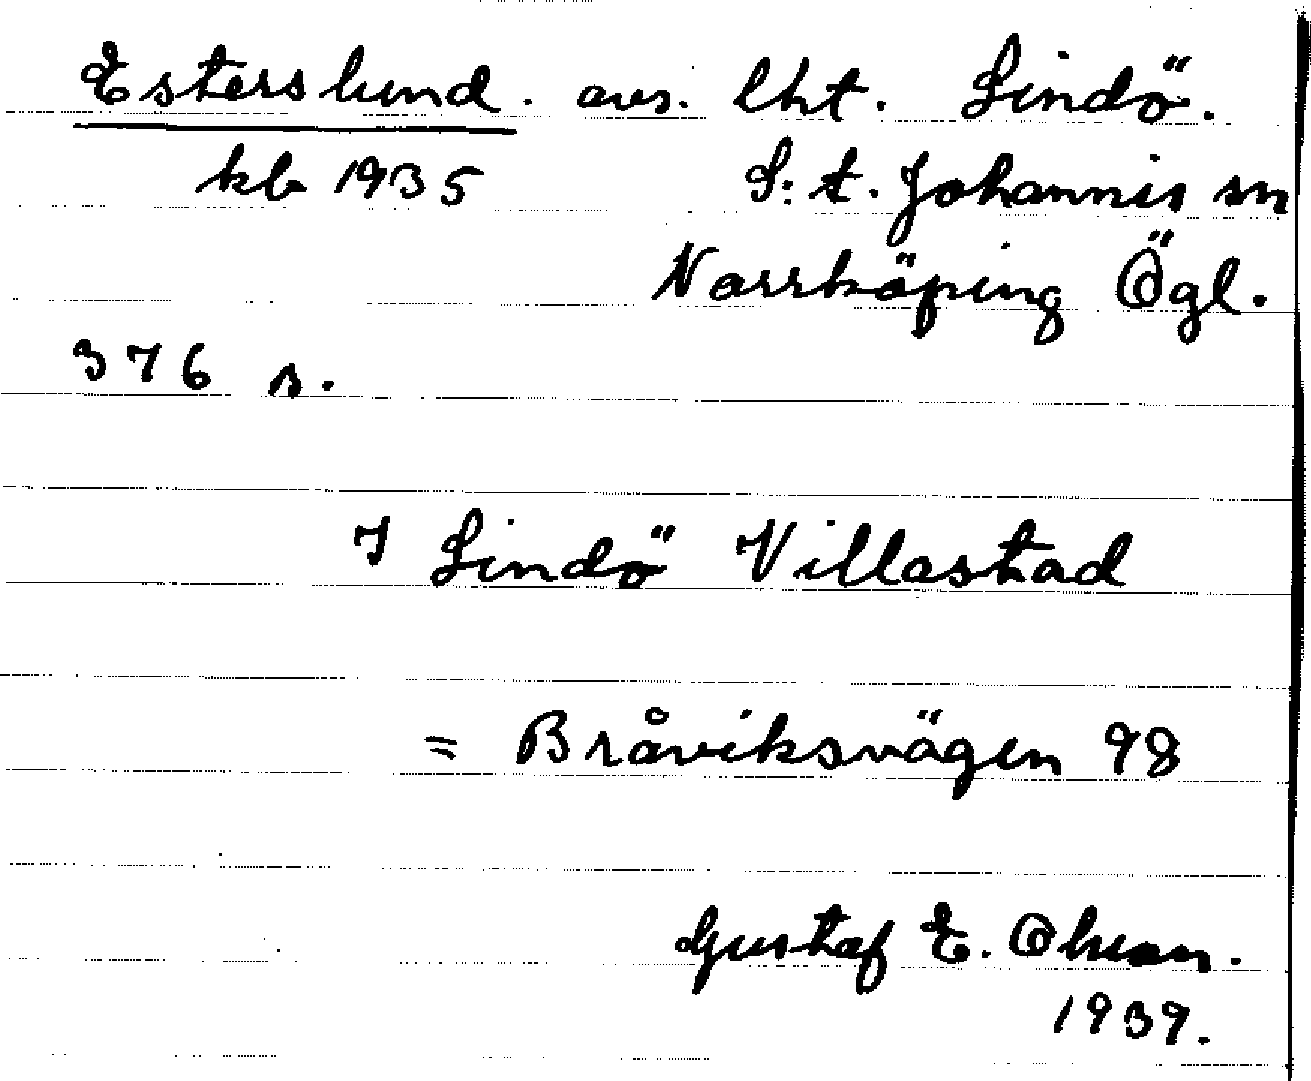 Esterslund. avs. lht. Lindö.
kb 1935 S:t. Johannis sn
Norrköping Ögl.
376 s.
I Lindö Villastad
= Bråviksvägen 98
Gustaf E.
1939.